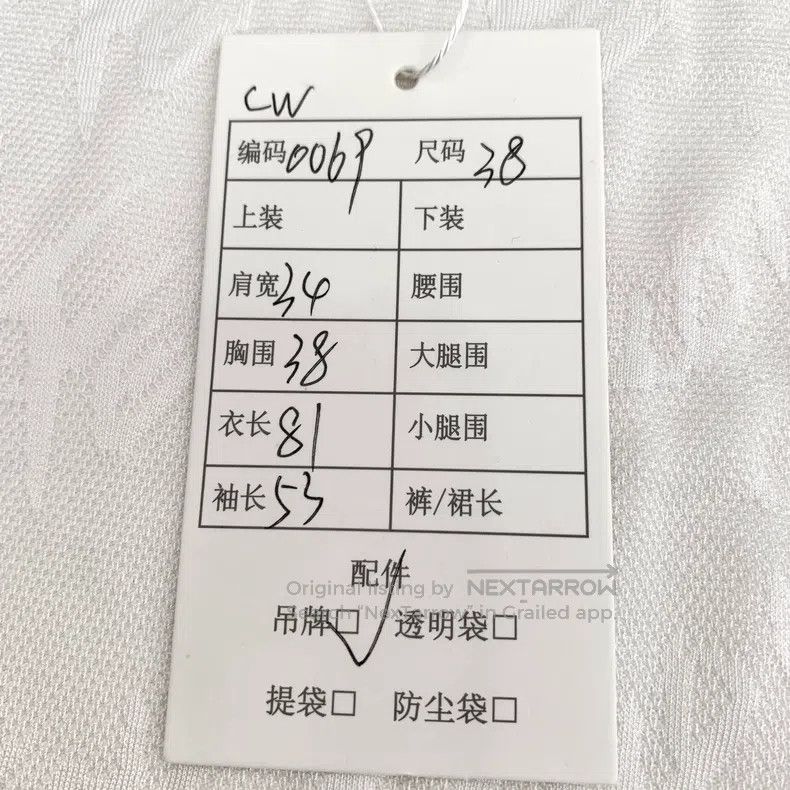 CW
编码0069 尺码38
上装 下装
肩宽34 腰围
胸围38 大腿围
衣长81 小腿围
袖长53 裤/裙长
配件
Original listing by NEXTARROW
Search "NexTarrow" in Grailed app
吊牌□ 透明袋□
提袋□ 防尘袋□